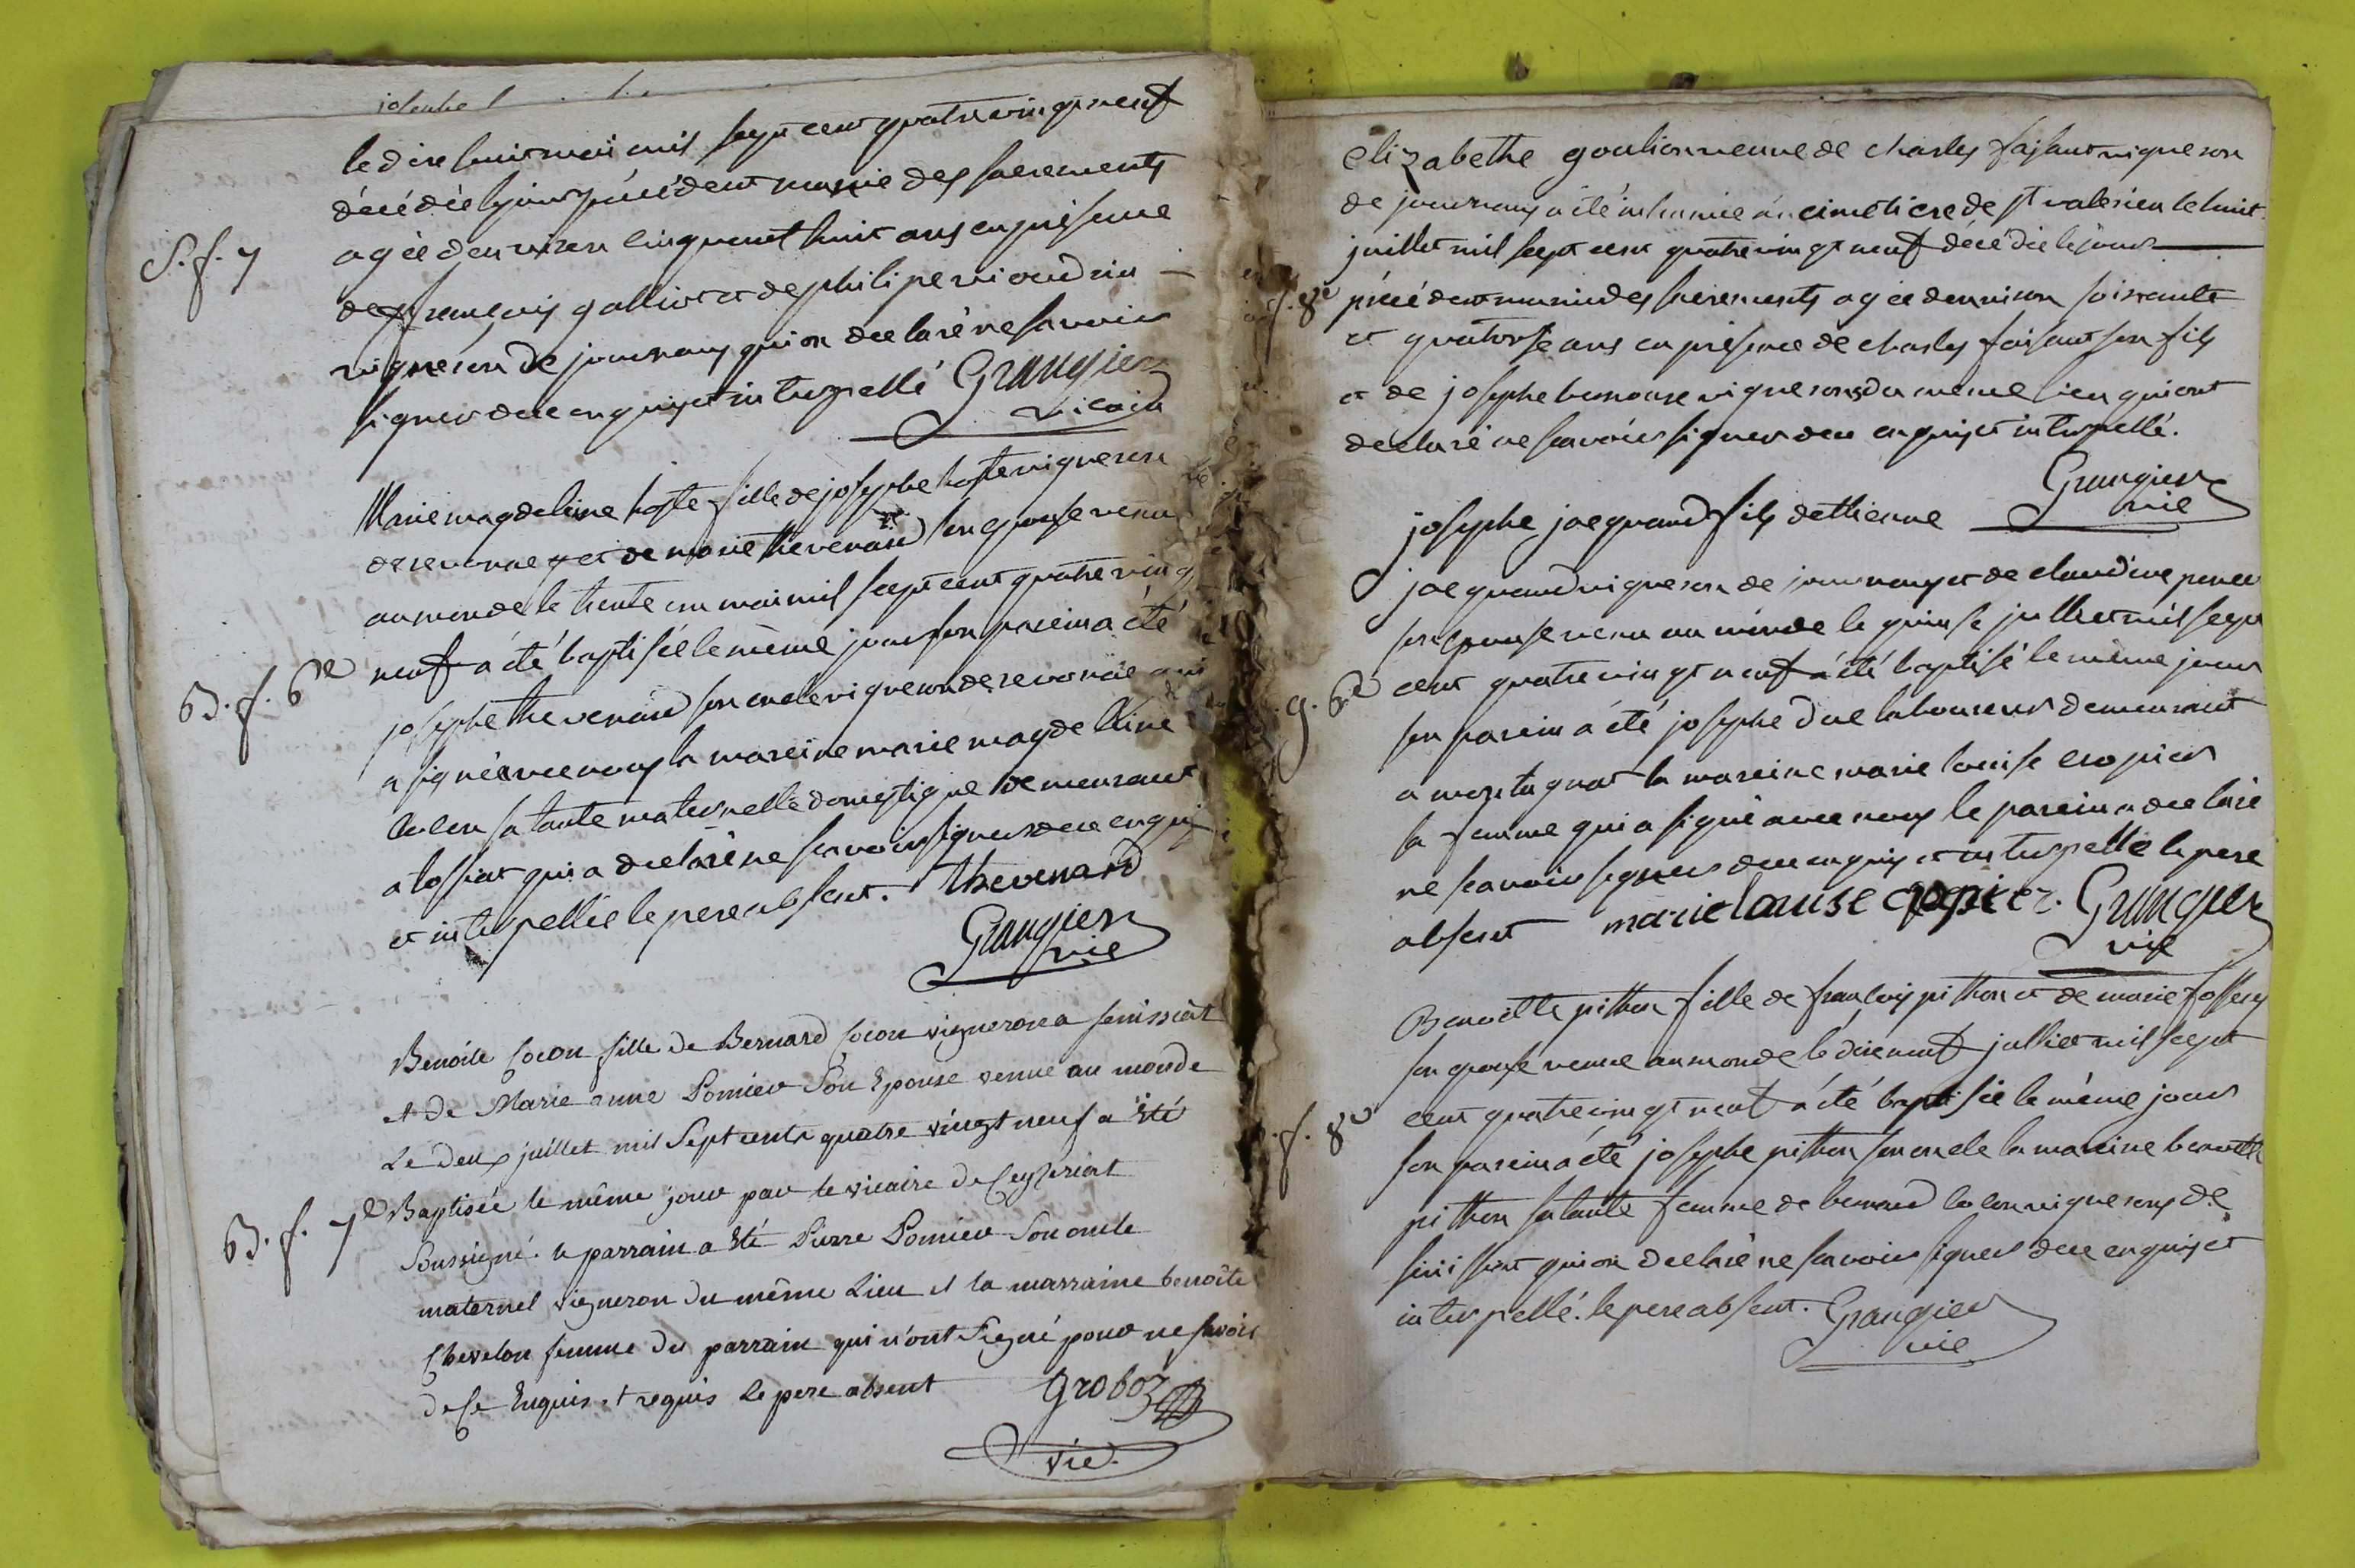 le dixe huit mai mil sept cent quatre vingt neuf
décédée le jour précédent munie des sacrements
S. f. 7
agée d'environ cinquant huit ans en présence
de françois galliot et de philipe vioud vin
vigneron de journans qui on declaré ne savoir
signer dece enquis et interpellé Grangier
vicair
Marie magdeleine hoste fille de josephe hoste vigneron
de revonnas et de marie thevenard son epouse venu
au monde le trente un mai mil sept cent quatre ving
B. f. 6e
neuf a été baptisée le même jour son parein a été
josephe thevenard son oncle vigneron de revonas qui
a signé avec nous la mareine marie magdelleine
sa tante maternelle domestique demeurant
a tossiat qui a declaré ne scavoir signer dece enquis
et interpellée le pere absent. thevenard
Grangier
vic
Benoite Cocon fille de Bernard Cocon vigneron a senissiat
et de Marie anne Pomier Son Epouse venue au monde
Le deux juillet mil Sept cents quatre vingt neuf a Eté
B. f. 7e
Baptisée le même jour par le vicaire de Ceyzeriat
Soussigné. le parrain a Eté Pierre Pomier Son oncle
maternel vigneron du même Lieu et la marraine benoîte
Chevelon femme du parrain qui n'ont Signé pour ne savoir
de Ce Enquis et requis Le pere absent Groboz
vic.
Elizabethe goulion veuve de charles faisant vigneron
de journans a été inhumée au cimetiere de st valerien le huit
juillet mil sept cent quatre vingt neuf décédée le jour
f. 8e
précédent munie des sacrements agée d'environ soixante
et quatorse ans en présence de charles faisant son fils
et de josephe bonnoure vignerons du meme lieu qui ont
déclaré ne scavoir signer dece enquis et interpellé.
Grangier
vic
josephe jacquand fils dethienne
jacquand vigneron de journans et de claudine
son epouse venu au monde le quinse juillet mil sept
g. 6e
cent quatre vingt neuf a été baptisé le même jour
son parein a été josephe duc laboureur demeurant
a montagnat la mareine marie louise cropier
sa femme qui a signé avec nous le parein a declaré
ne scavoir signer dece enquis et interpellé le pere
absent marie louise cropier. Grangier
vic
Benoitte pithon fille de françois pithon et de marie
son epouse venue au monde le dixe neuf julliet mil sept
f. 8e
cent quatre vingt neuf a été baptisée le même jour
son parein a été josephe pithon son oncle la mareine benoitte
pithon sa tante femme de bernard cocon vignerons de
senissiat qui on declaré ne scavoir signer dece enquis et
interpellé. le pere absent. Grangier
vic